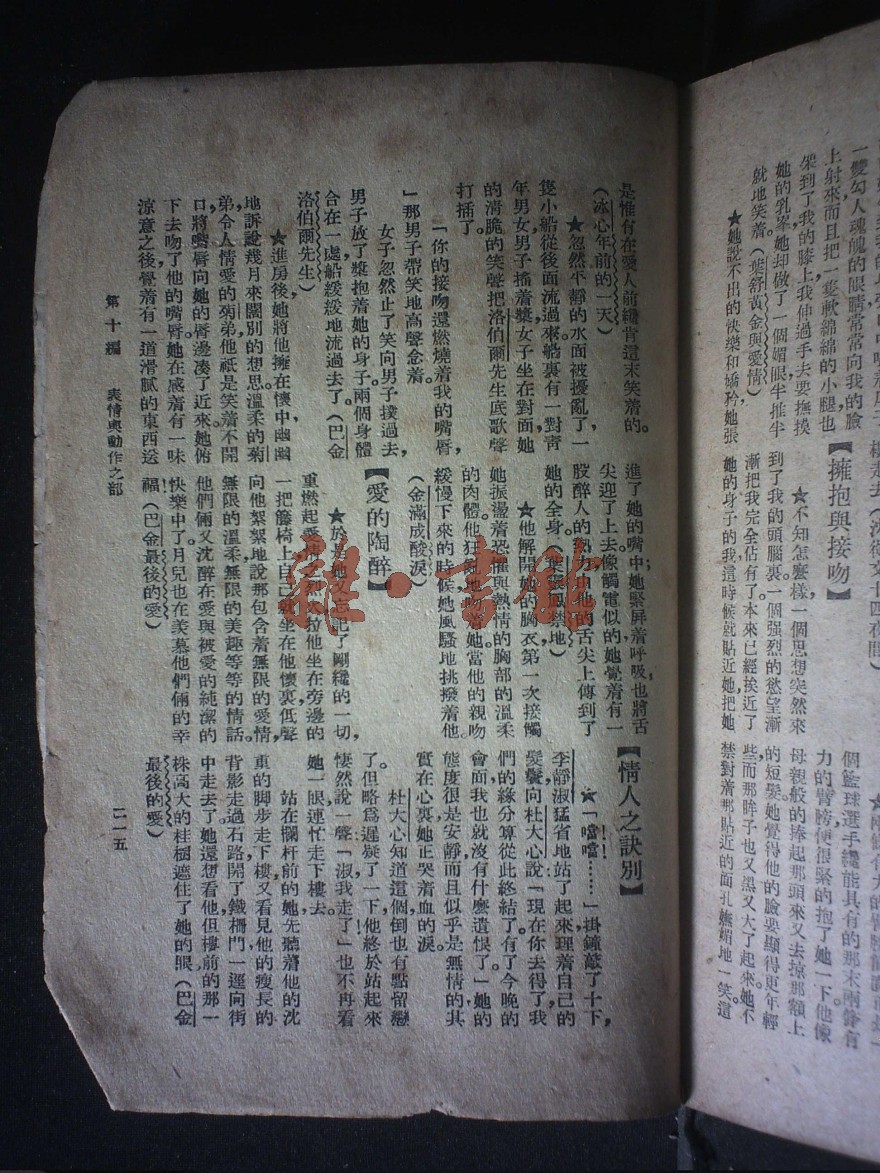 一雙勾人魂魄的眼睛常常向我的臉
上射來，而且把一隻軟綿綿的小腿也
架到了我的膝上，我伸過手去要撫摸
她的乳峯，她却做了一個媚眼半推半
就地笑着。（葉舒黃金與愛情）
★她說不出的快樂和嬌矜，她張
（沈從文十四夜間）
【擁抱與接吻】
★不知怎麼樣，一個思想突然來
到了我的頭腦裏，一個强烈的慾望漸
漸把我完全佔有了。本來已經挨近了
她的身子的我，這時候就貼近她，把她
個籃球選手纔能具有的那末兩條有
力的臂膀，便很緊的抱了她一下。他像
母親般的捧起那頭來，又去掠那額上
的短髮。她覺得他的臉要顯得更年輕
些，而那眸子也又黑又大了起來。她不
禁對着那貼近的面孔嫵媚地一笑。這
是惟有在愛人前纔肯這末笑着的。
（冰心年前的一天）
★忽然平靜的水面被擾亂了，一
隻小船從後面流過來。船裏有一對青
年男女，男子搖着槳，女子坐在對面，她
的清脆的笑聲把洛伯爾先生底歌聲
打插了。
「你的接吻還燃燒着我的嘴唇，
」那男子帶笑地高聲念着。
女子忽然止了笑，向男子撲過去，
男子放了槳抱着她的身子。兩個身體
合在一處，船緩緩地流過去了。（巴金
洛伯爾先生）
★進房後，她將他擁在懷中，幽幽
地訴說幾月來闊別的想思。溫柔的菊
弟，令人情愛的菊弟，他祇是笑着不開
口，將嘴唇向她的唇邊湊了近來。她俯
下去吻了他的嘴唇，她在感着有一味
涼意之後，覺着有一道滑膩的東西送
進了她的嘴中，她緊屏着呼吸，也將舌
尖迎了上去。像觸電似的，她覺着有一
股醉人的熱力，由他的舌尖上傳到了
她的全身。（葉靈鳳禁地）
★他解開她的胸衣，第一次接觸
她振盪着恐懼與熱情的胸部的溫柔
的肉體。他狂亂地吻着她，當他的親吻
緩慢下來的時候，她風騷地挑撥着他。
（金滿成酸淚）
【愛的陶醉】
★於是她又忘記了剛纔的一切，
重燃起愛情之烈火，拉他坐在旁邊的
一把籐椅上，自己就坐在他懷裏，低聲
向他絮絮地說那包含着無限的愛情，
無限的溫柔，無限的美趣等等的情話。
他們倆又沈醉在愛與被愛的純潔的
快樂中了。月兒也在羨慕他們倆的幸
福！（巴金最後的愛）
【情人之訣別】
★「噹！噹！……」掛鐘敲了十下，
李靜淑猛省地站了起來，理着自己的
髮鬢，向杜大心說：「現在你去得了，我
們的緣分算從此終結了。有了今晚的
會面，我也就沒有什麼遺恨了。」她的
態度很是安靜，而且似乎是無情的，其
實在心裏，她正哭着血的淚。
杜大心知道這個，倒也有點留戀
了。但略爲遲疑了一下，他終於站起來，
悽然說一聲：「淑，我走了！」也不再看
她一眼，連忙走下樓去。
站在欄杆前的她，先聽着他的沈
重的脚步走下樓，又看見他的瘦長的
背影走過石路，開了鐵柵門，一逕向街
中走去了。她還想看他，但樓前的那一
株高大的桂樹遮住了她的眼。（巴金
最後的愛）
第十編　表情與動作之部
二一五
雜·書館